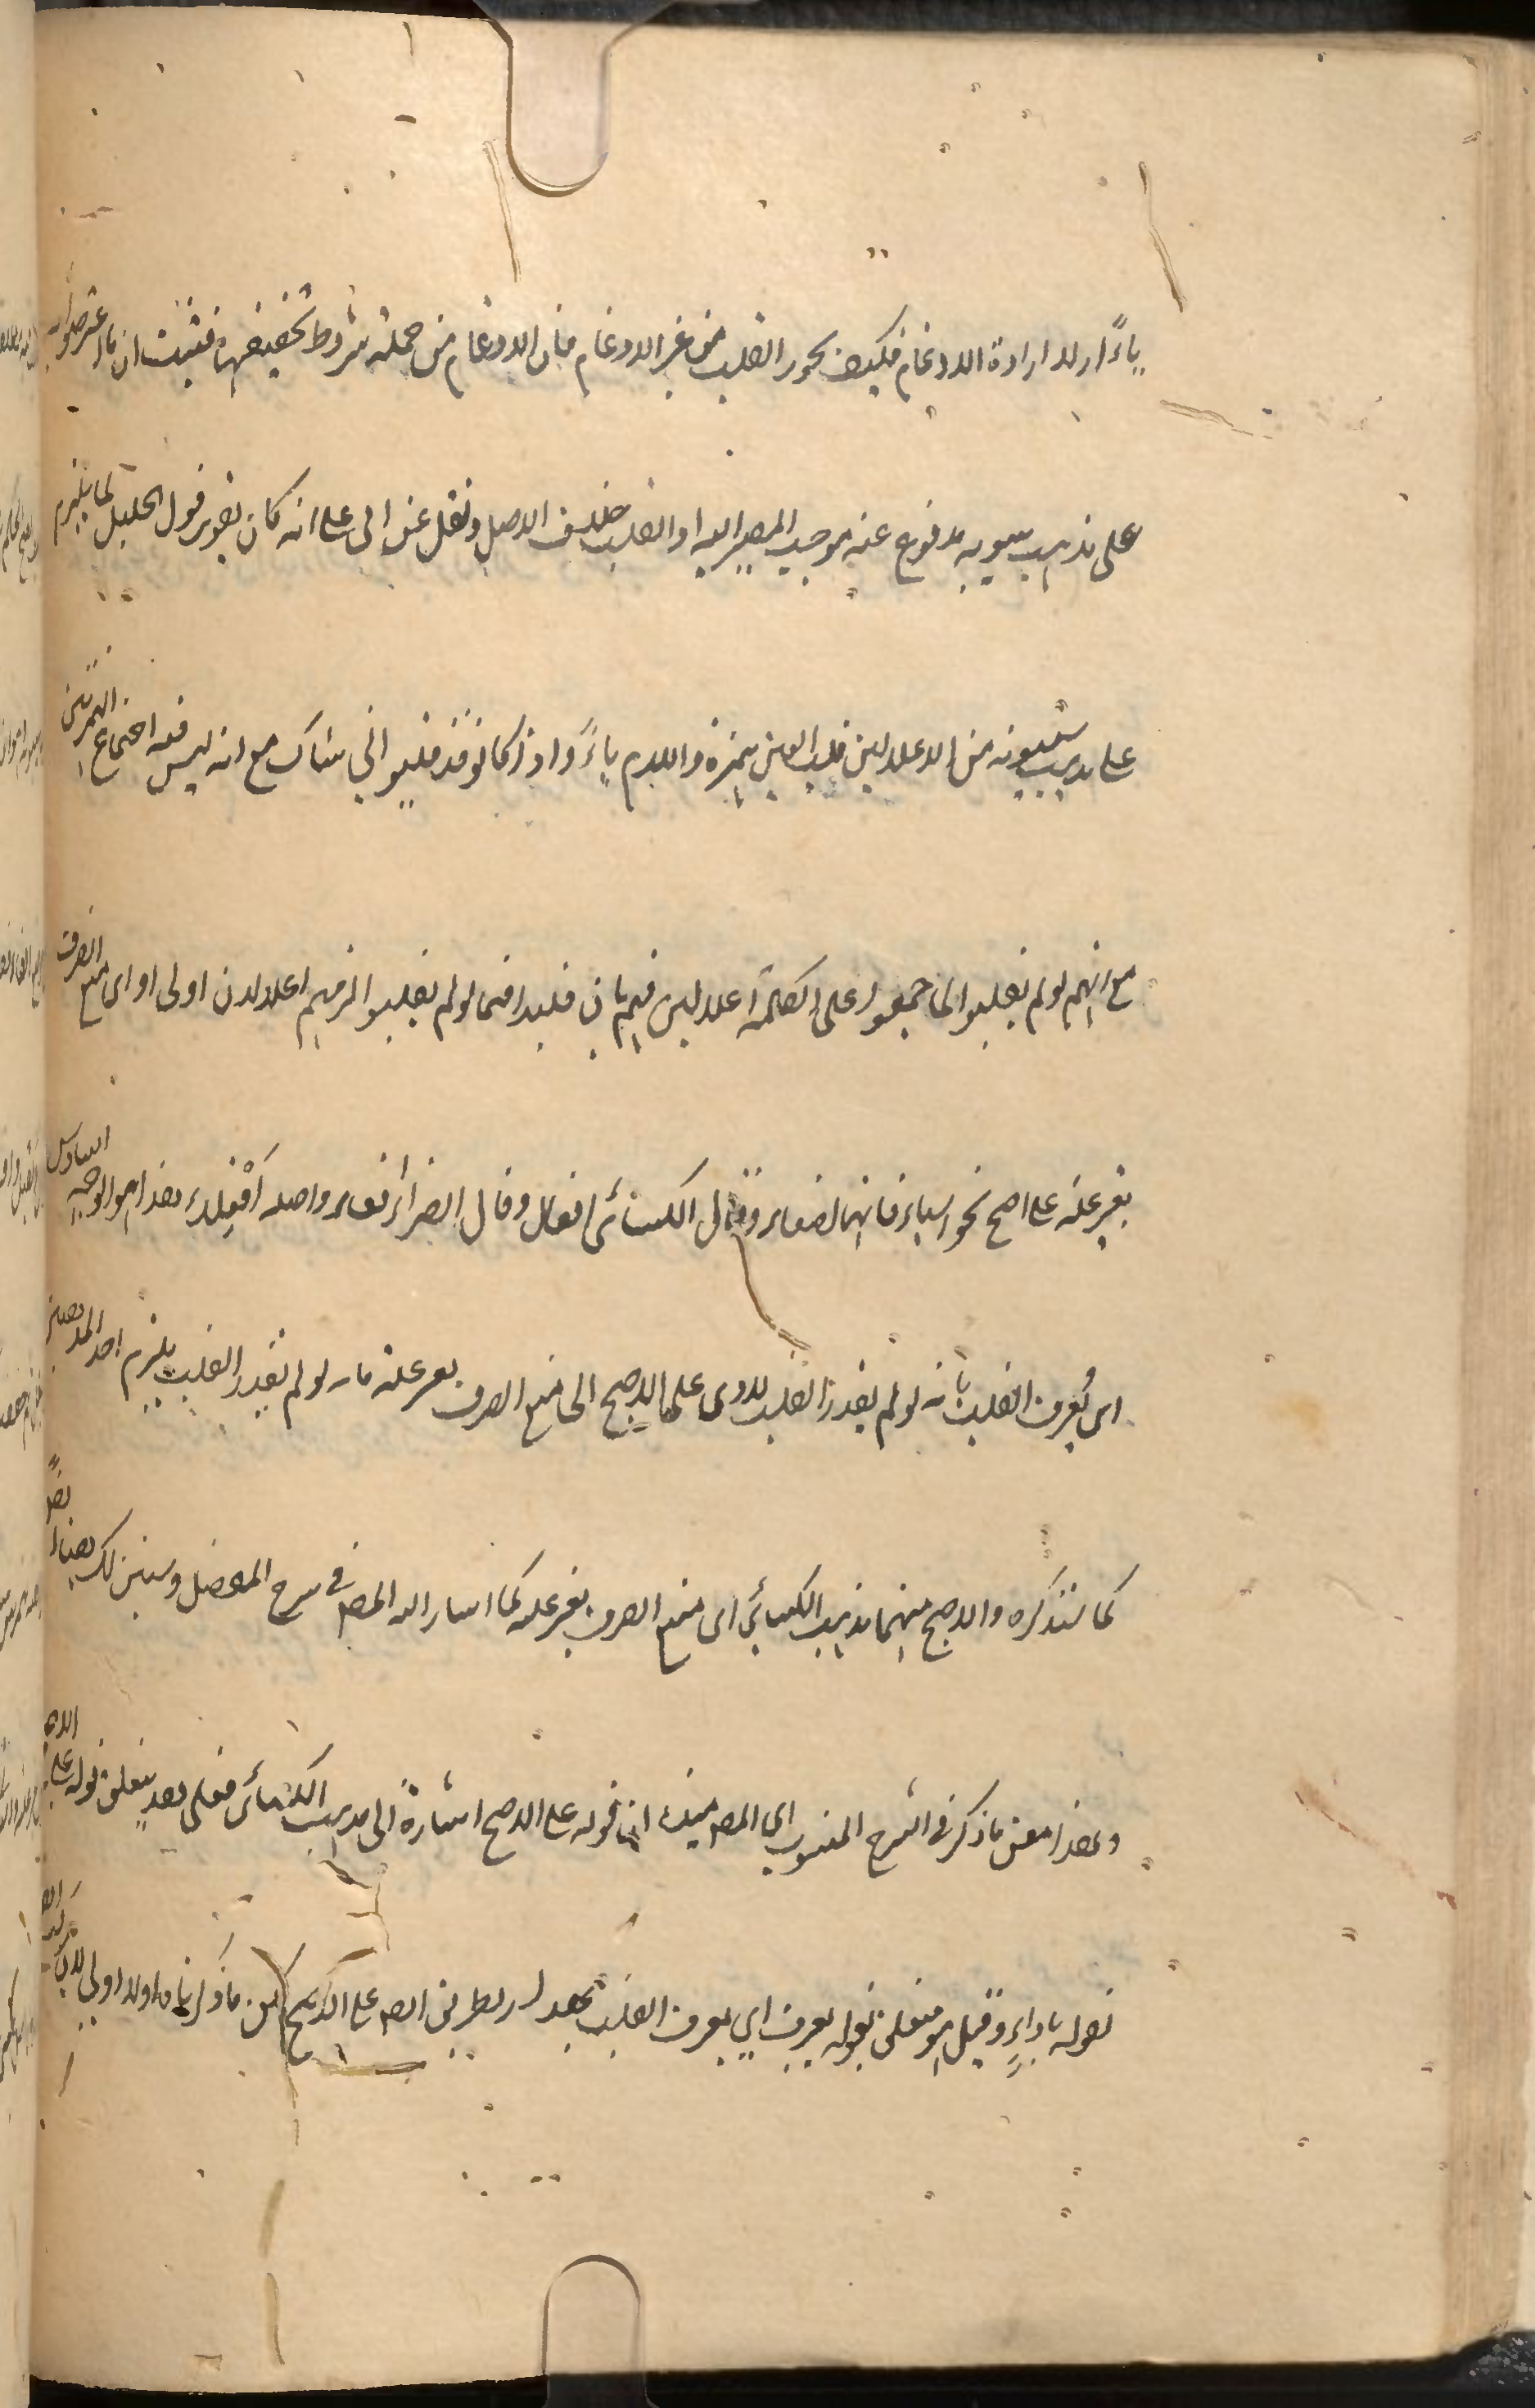 ياءً اولا ارادة الادغام فكيف يجوز القلب من غير الادغام فان الادغام من جملة شروط تخفيفها فثبت ان ما اعترضوا به
على مذهب سيبويه مدفوع عنه موجب المصير اليه اذ القلب خلاف الاصل ونقل عن ابى على انه كان يقوى قول الخليل لما يلزم
على مذهب سيبويه من الاعلالين قلب العين همزة واللام ياءً واذا كانوا قد قلبوا فى شاك مع انه ليس فيه اجتماع الهمزتين
مع انهم لو لم يقلبوا لما جمعوا على الكلمة اعلالين فهم بان قلبوا فيما لو لم يقلبوا لزمهم اعلالان اولى او اى منع الصرف
بغير علة على اصح نحو اشياء فانها لفعاء وقال الكسائى افعال وقال الفراء افعاء واصله افعلاء هذا هو الوجه السادس
اى يُعرف القلب بانه لو لم يقدر القلب لادى على الاصح الى منع الصرف بغير علة فانه لو لم يقدر القلب يلزم احد المذهبين
كما سنذكره والاصح منهما مذهب الكسائى اى منع الصرف بغير علة كما اشار اليه المص فى شرح المفصل وسنبين لك
وهذا معنى ما ذكر فى الشرح المنسوب الى المص ان قوله على الاصح اشارة الى مذهب الكسائى فعلى هذا يتعلق قوله على
بقوله باداء وقيل هو متعلق بقوله يعرف اى يعرف القلب بهذا الطريق على الاصح لكن ما ذكرناه اولا اولى